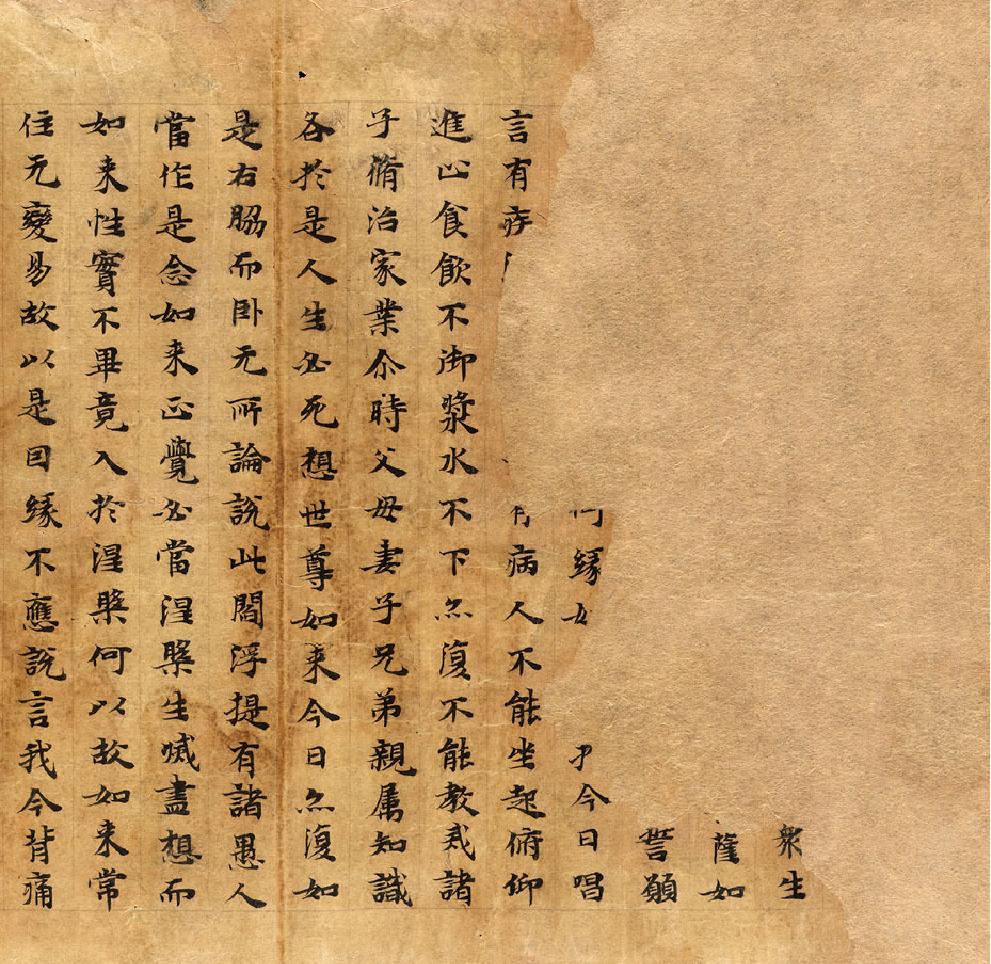 衆生
薩如
誓願
何緣 今日唱
言有 病人不能坐起俯仰
進止食飲不御漿水不下亦復不能教戒諸
子脩治家業尒時父母妻子兄弟親属知識
各於是人生必死想世尊如来今日亦復如
是右脇而卧无所論說此閻浮提有諸愚人
當作是念如来正覺必當涅槃生滅盡想而
如来性實不畢竟入於涅槃何以故如来常
住无變易故以是因緣不應說言我今背痛